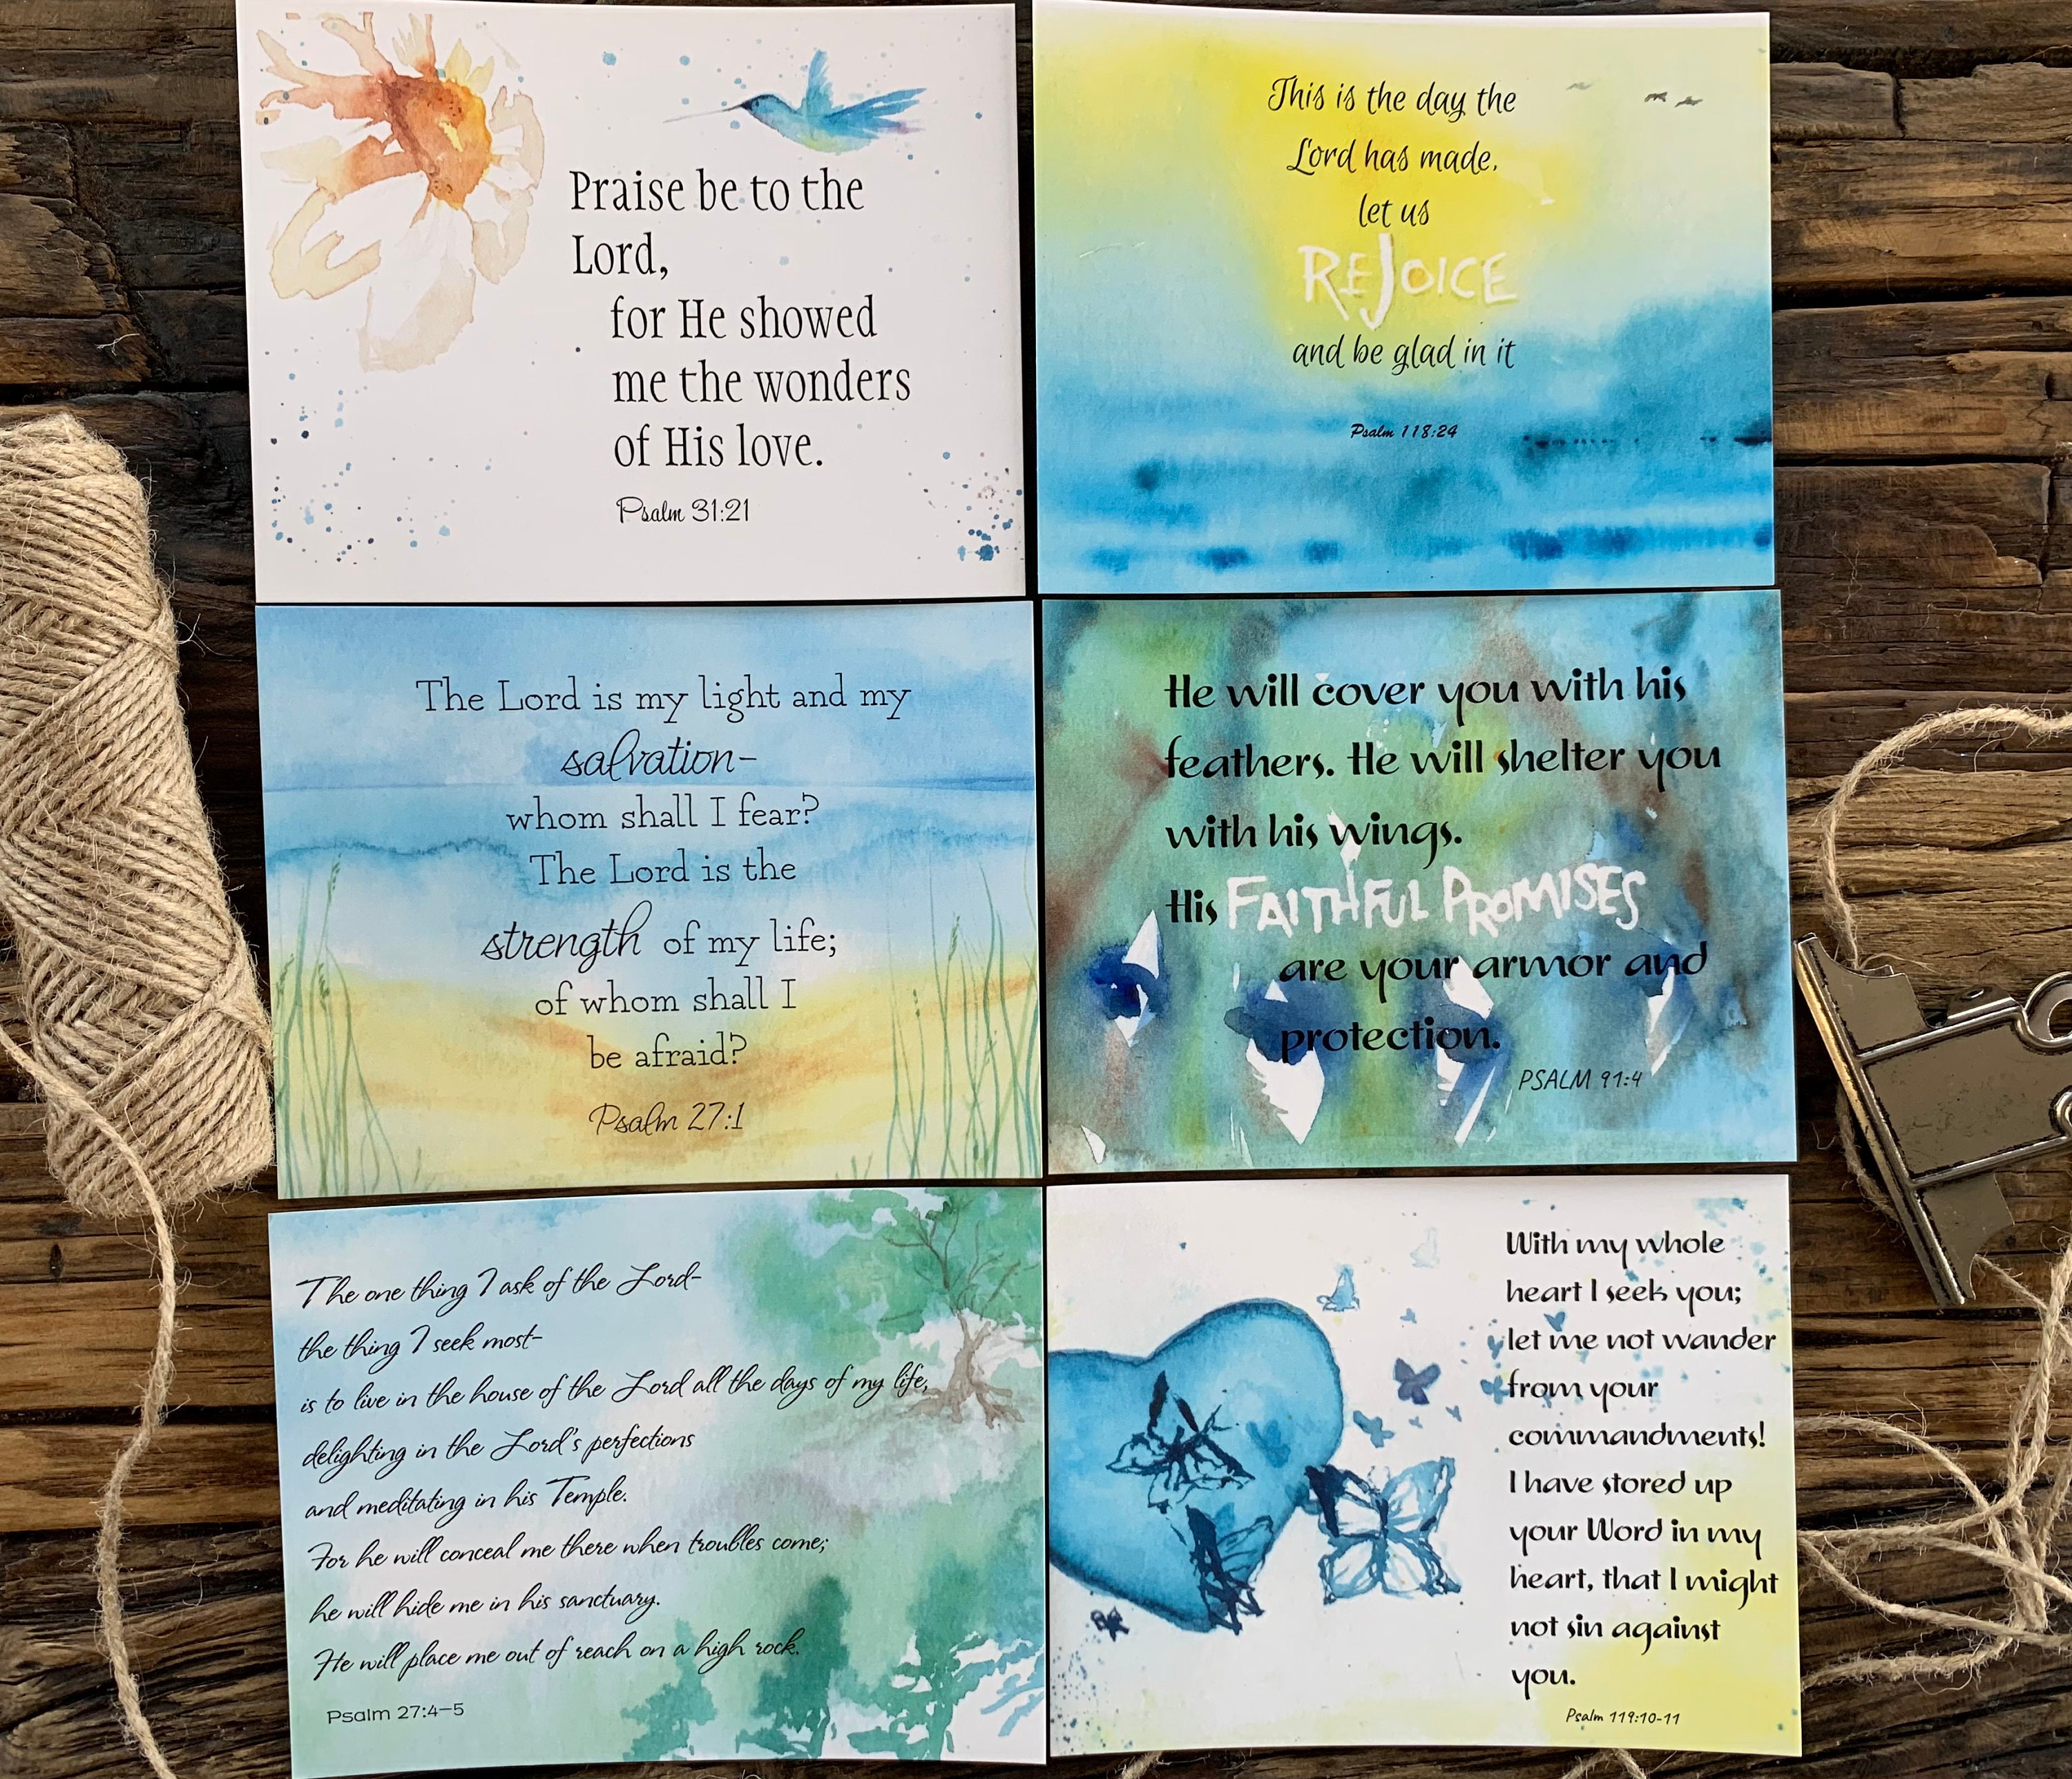 Praise be to the
Lord,
for He showed
me the wonders
of His love.
Psalm 31:21
This is the day the
Lord has made,
let us
REJOICE
and be glad in it
Psalm 118:24
The Lord is my light and my
salvation-
whom shall I fear?
The Lord is the
strength of my life;
of whom shall I
be afraid?
Psalm 27:1
He will cover you with his
feathers. He will shelter you
with his wings.
His FAITHFUL PROMISES
are your armor and
protection.
PSALM 91:4
The one thing I ask of the Lord-
the thing I seek most-
is to live in the house of the Lord all the days of my life,
delighting in the Lord's perfections
and meditating in his Temple.
For he will conceal me there when troubles come;
he will hide me in his sanctuary.
He will place me out of reach on a high rock.
Psalm 27:4-5
With my whole
heart I seek you;
let me not wander
from your
commandments!
I have stored up
your Word in my
heart, that I might
not sin against
you.
Psalm 119:10-11